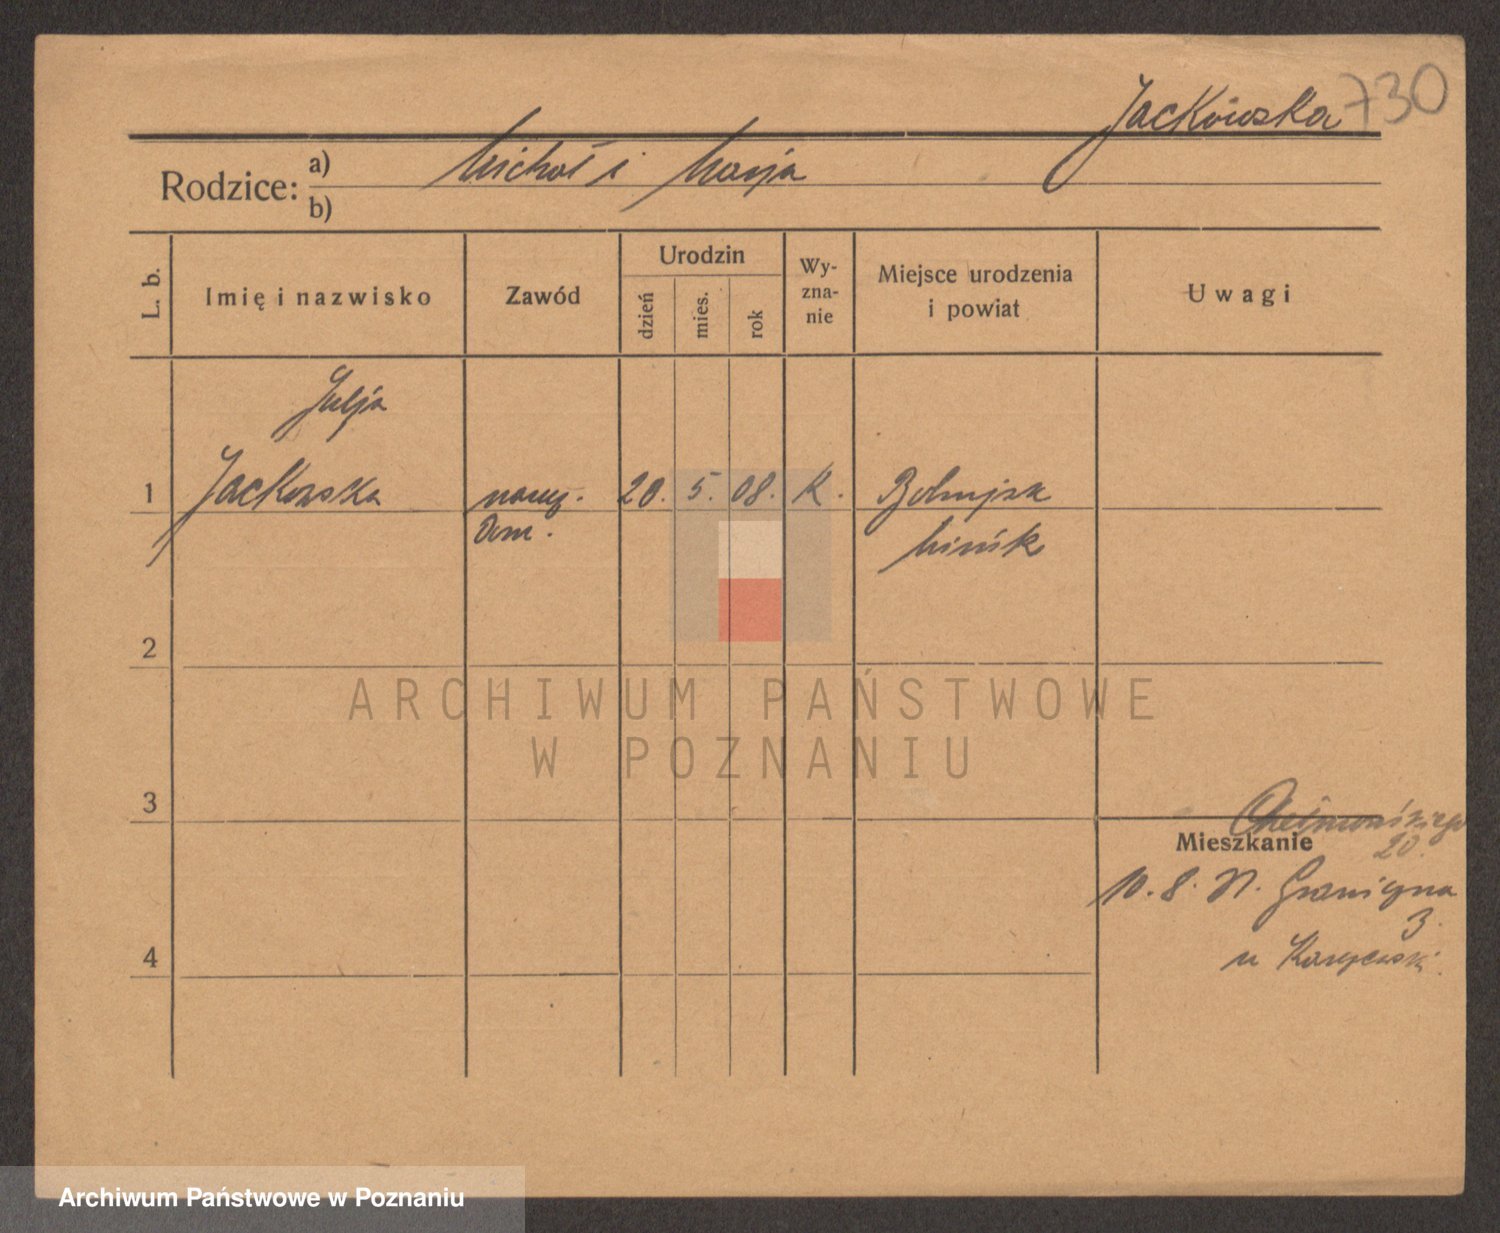 Jackowska 730
Rodzice: a) Michał i Marja
b)
L. b.
Imię i nazwisko
Zawód
Urodzin
dzień
mies.
rok
Wy-
zna-
nie
Miejsce urodzenia
i powiat
Uwagi
Julja
1 Jackowska naucz. 20. 5. 08. K.
Dom.
Mińsk
2
ARCHIWUM PAŃSTWOWE
W POZNANIU
3
Chełmońskiego
Mieszkanie 20.
10. 8. Graniczna
3.
u
4
Archiwum Państwowe w Poznaniu